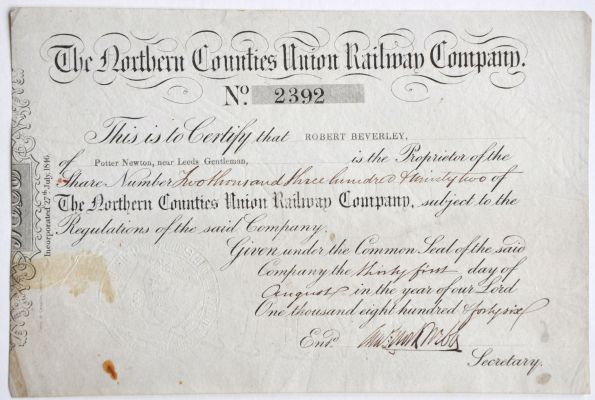 The Northern Counties Union Railway Company.
No. 2392
This is to Certify that ROBERT BEVERLEY,
of Potter Newton, near Leeds Gentleman, is the Proprietor of the
Share Number Two thousand three hundred & ninety two of
The Northern Counties Union Railway Company, subject to the
Regulations of the said Company.
Given under the Common Seal of the said
Company the thirty first day of
August in the year of our Lord
One thousand eight hundred & forty six
Entd.
Secretary.
Incorporated 27th July, 1846.